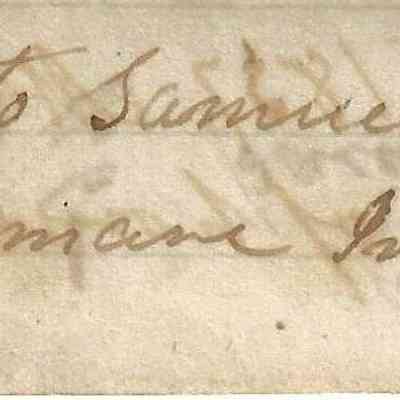 to Samue
mane In